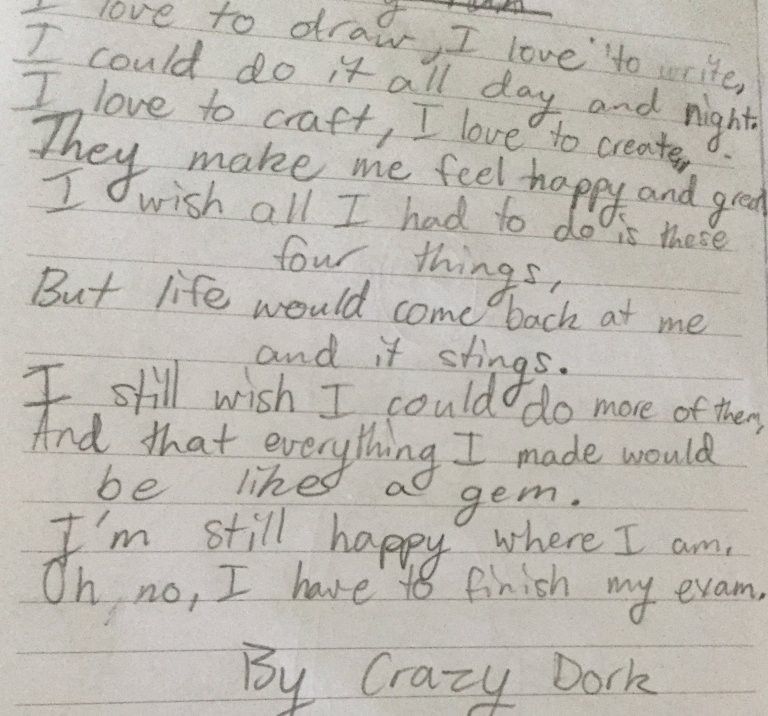 I love to draw, I love to write,
I could do it all day and night.
I love to craft, I love to create,
They make me feel happy and great
I wish all I had to do is these
four things,
But life would come back at me
and it stings.
I still wish I could do more of them,
And that everything I made would
be likes a gem.
I'm still happy where I am.
Oh no, I have to finish my exam.
By Crazy Dork